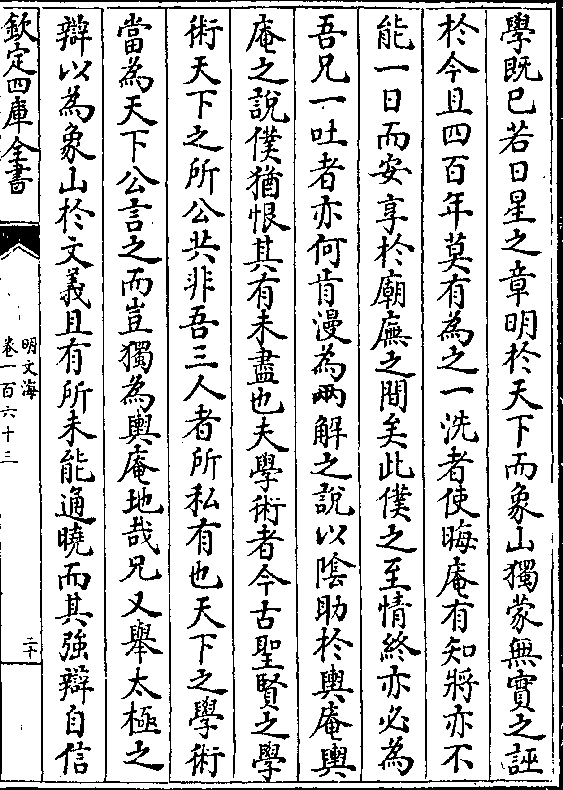 學既已若日星之章明於天下而象山獨蒙無實之誣
於今且四百年莫有為之一洗者使晦庵有知將亦不
能一日而安享於廟廡之間矣此僕之至情終亦必為
吾兄一吐者亦何肯漫為兩解之說以陰助於輿庵輿
庵之說僕猶恨其有未盡也夫學術者今古聖賢之學
術天下之所公共非吾三人者所私有也天下之學術
當為天下公言之而豈獨為輿庵地哉兄又舉太極之
辯以為象山於文義且有所未能通曉而其強辯自信
欽定四庫全書
明文海
卷一百六十三
二十